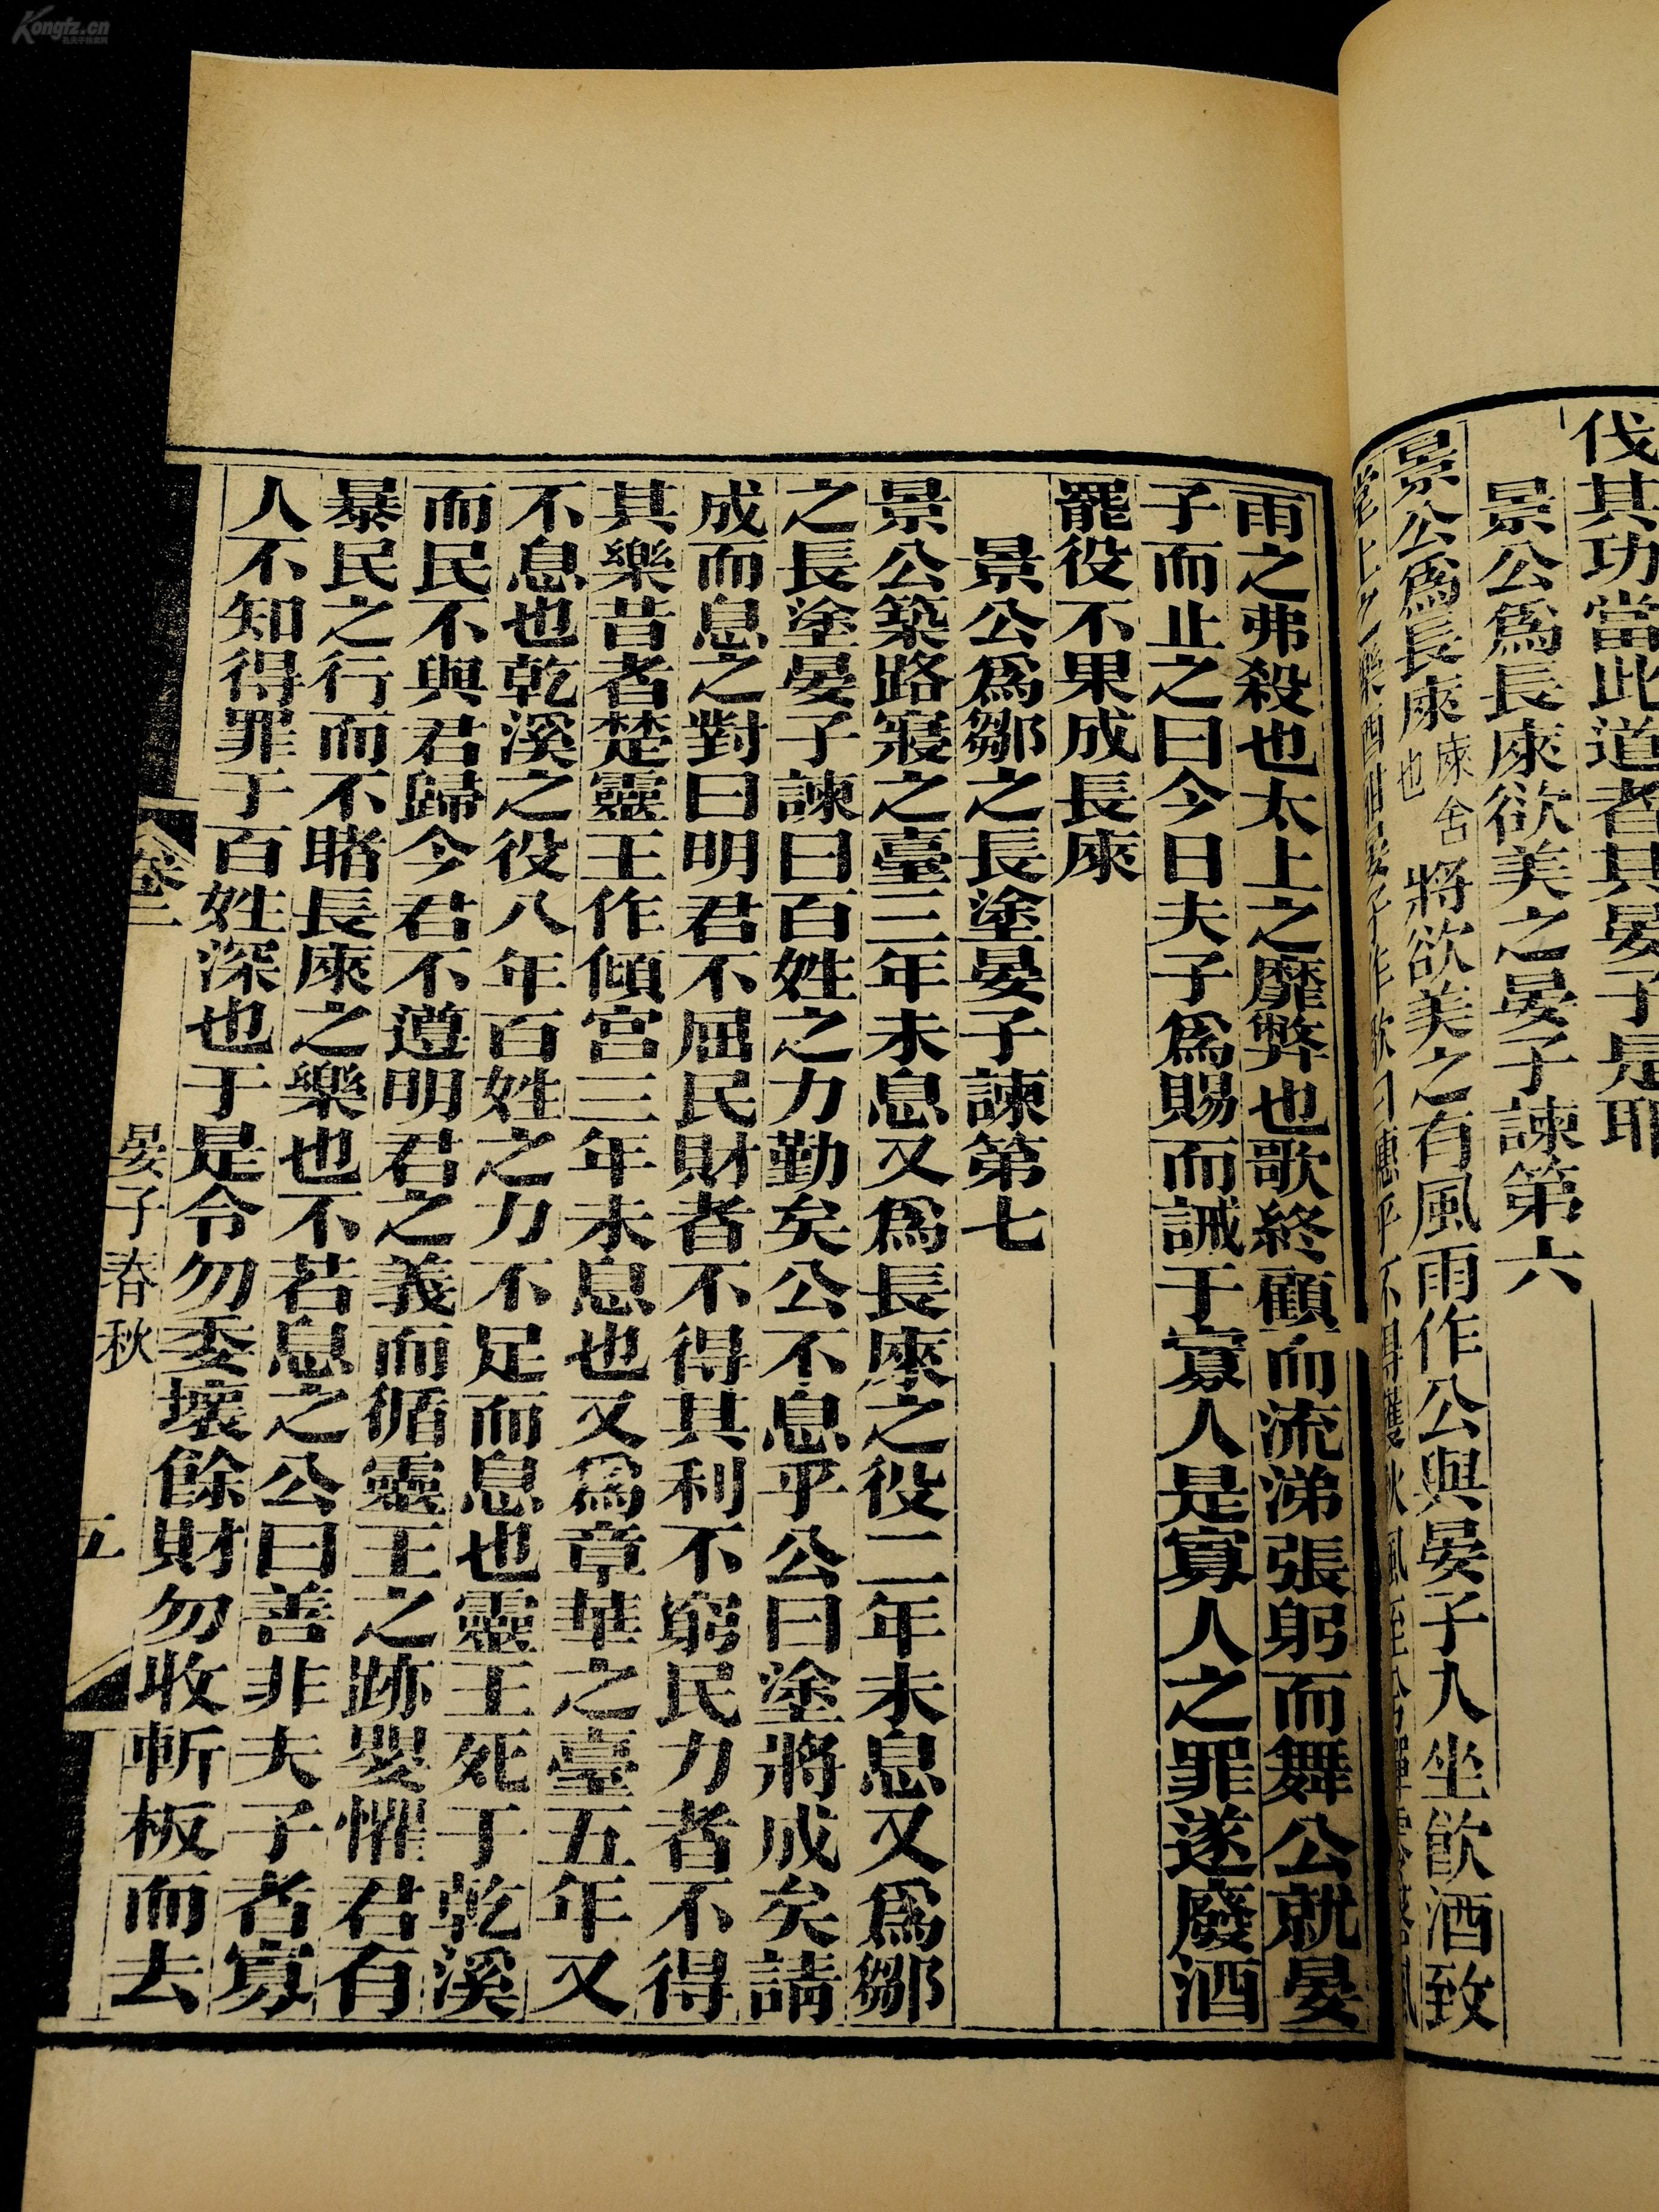 Kongfz.cn
伐其功當此道者其晏子是耶
景公爲長庲欲美之晏子諫第六
景公爲長庲庲舍也將欲美之有風雨作公與晏子入坐飮酒致
雨之弗殺也太上之靡弊也歌終顧而流涕張躬而舞公就晏
子而止之曰今日夫子爲賜而誡于寡人是寡人之罪遂廢酒
罷役不果成長庲
景公爲鄒之長塗晏子諫第七
景公築路寢之臺三年未息又爲長庲之役二年未息又爲鄒
之長塗晏子諫曰百姓之力勤矣公不息乎公曰塗將成矣請
成而息之對曰明君不屈民財者不得其利不窮民力者不得
其樂昔者楚靈王作傾宮三年未息也又爲章華之臺五年又
不息也乾溪之役八年百姓之力不足而息也靈王死于乾溪
而民不與君歸今君不遵明君之義而循靈王之跡嬰懼君有
暴民之行而不睹長庲之樂也不若息之公曰善非夫子者寡
人不知得罪于百姓深也于是令勿委壞餘財勿收斬板而去
卷二
晏子春秋
五